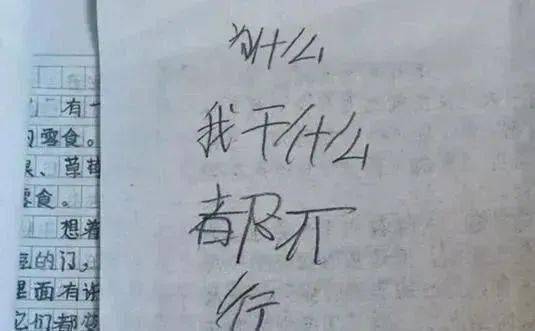 为什么
我干什么
都不
行
有一
零食。
、草莓
零食。
想着
的门，
里面有许
它们都